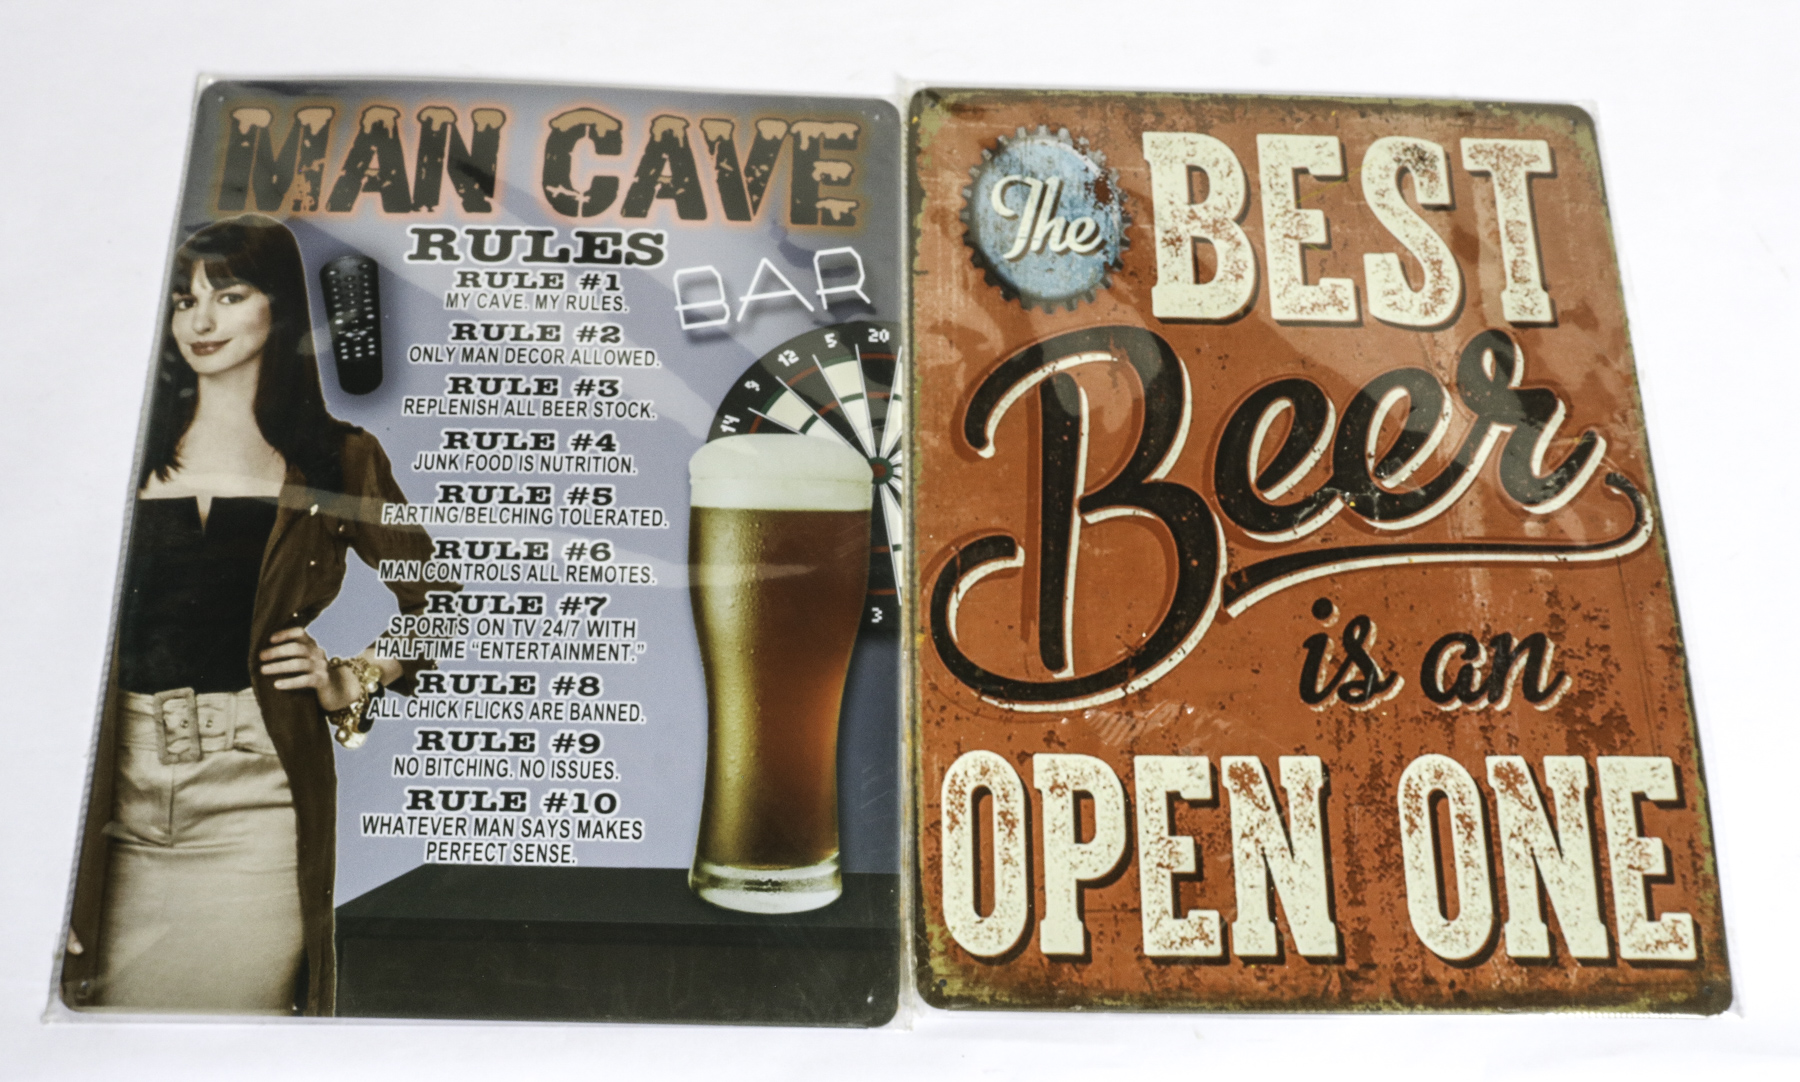 MAN CAVE
RULES
RULE #1
MY CAVE. MY RULES.
RULE #2
ONLY MAN DECOR ALLOWED.
RULE #3
REPLENISH ALL BEER STOCK.
RULE #4
JUNK FOOD IS NUTRITION.
RULE #5
FARTING/BELCHING TOLERATED.
RULE #6
MAN CONTROLS ALL REMOTES.
RULE #7
SPORTS ON TV 24/7 WITH
HALFTIME "ENTERTAINMENT."
RULE #8
ALL CHICK FLICKS ARE BANNED.
RULE #9
NO BITCHING. NO ISSUES.
RULE #10
WHATEVER MAN SAYS MAKES
PERFECT SENSE.
BAR
14 9 12 5 20
3
The BEST
Beer
is an
OPEN ONE